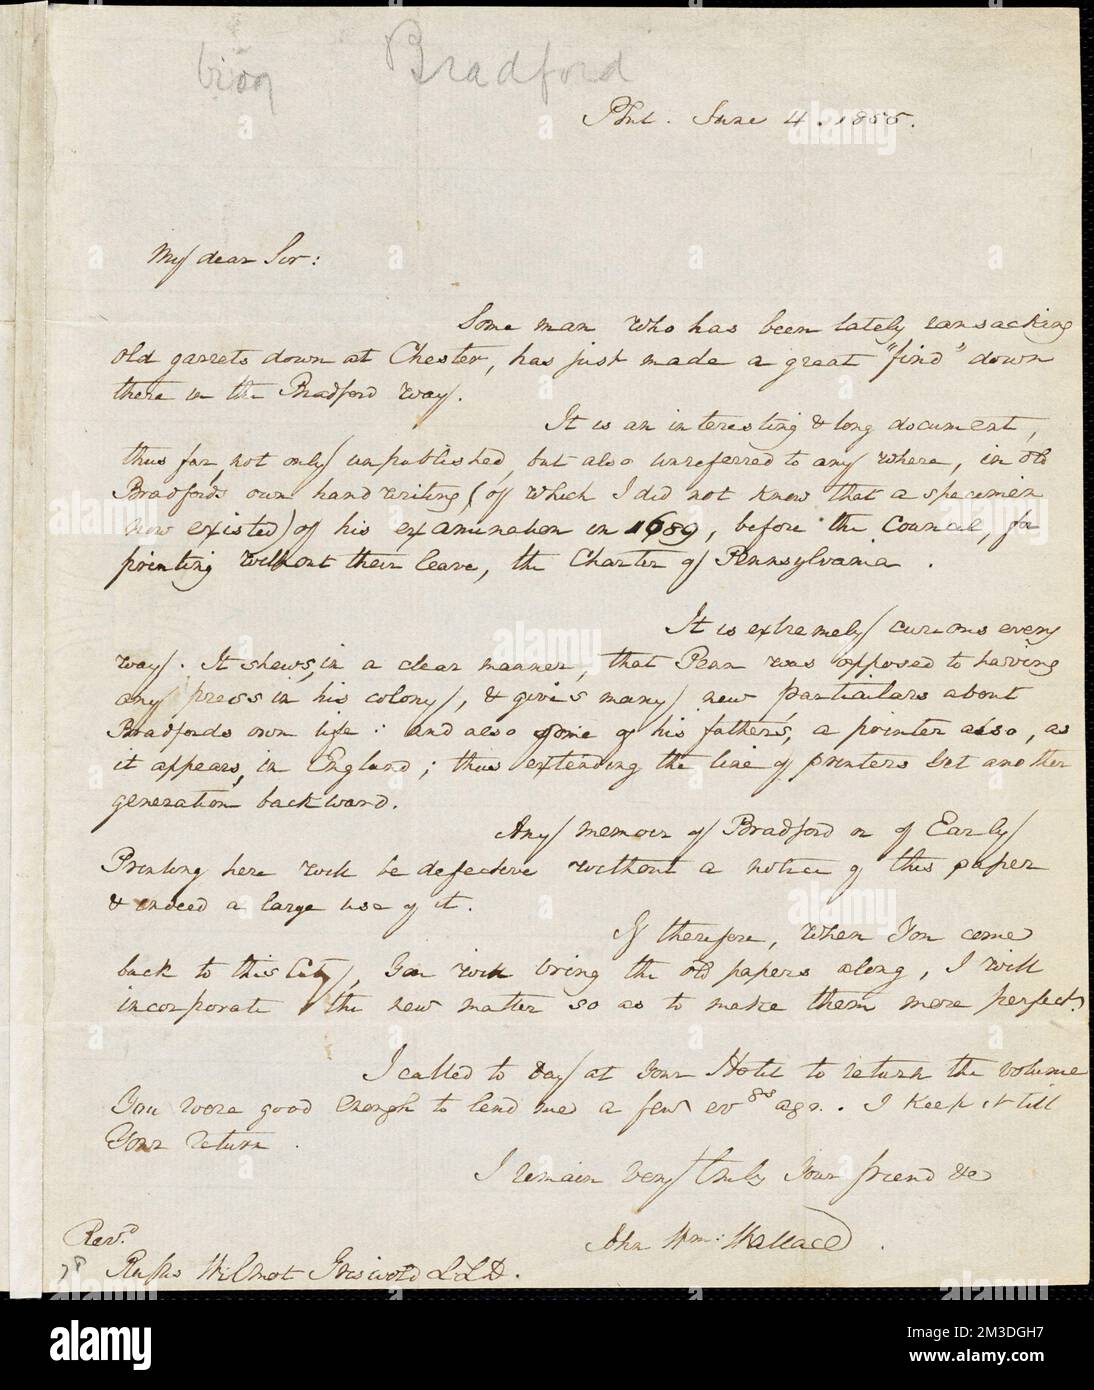 biog Bradford
Phil. June 4. 1855.
My dear Sir:
Some man who has been lately ransacking
old garrets down at Chester, has just made a great "find" down
there in the Bradford way.
It is an interesting & long document,
thus far, not only unpublished, but also unreferred to any where, in old
Bradfords own hand writing (of which I did not know that a specimen
now existed) of his examination in 1689, before the Council, for
printing without their leave, the Charter of Pennsylvania.
It is extremely curious every
way. It shews, in a clear manner, that Penn was opposed to having
any press in his colony, & gives many new particulars about
Bradfords own life: and also some of his father's, a printer also, as
it appears, in England; thus extending the line of printers yet another
generation backward.
Any memoir of Bradford or of Early
Printing here will be defective without a notice of this paper
& indeed a large use of it.
If therefore, when You come
back to this City, You will bring the old papers along, I will
incorporate the new matter so as to make them more perfect.
I called to day at Your Hotel to return the volume
You were good enough to lend me a few ev.gs ago. I keep it till
Your return.
I remain very truly Your friend &c
John Wm: Wallace.
Rev.d
Rufus Wilmot Griswold LLD.
78
alamy
Image ID: 2M3DGH7
www.alamy.com